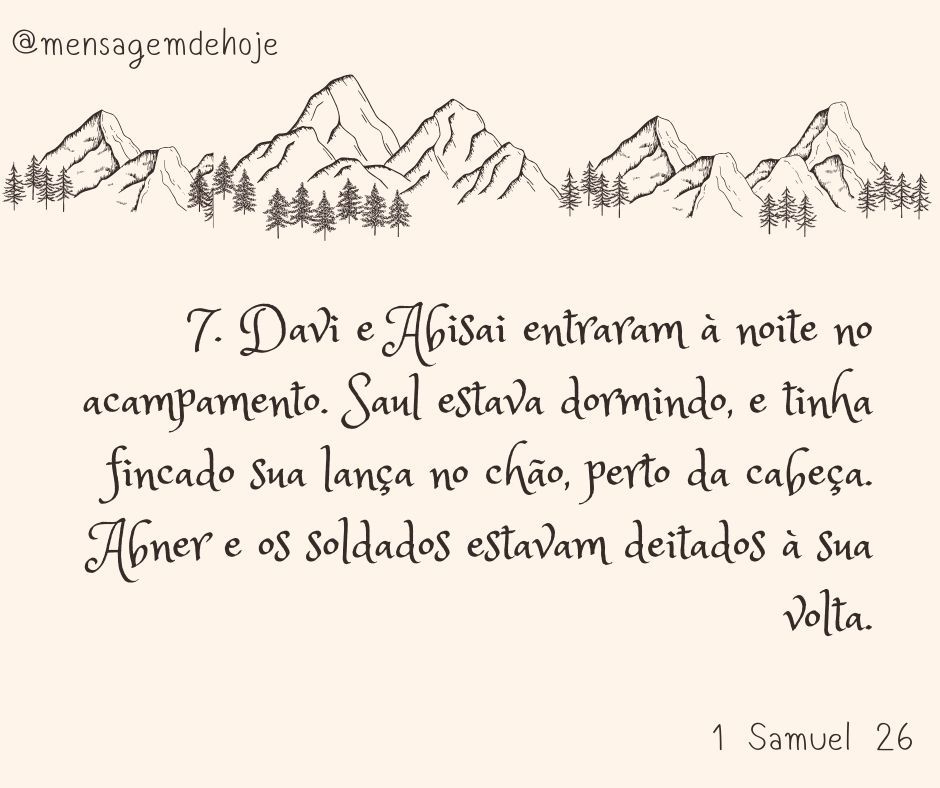 @mensagemdehoje
7. Davi e Abisai entraram à noite no
acampamento. Saul estava dormindo, e tinha
fincado sua lança no chão, perto da cabeça.
Abner e os soldados estavam deitados à sua
volta.
1 Samuel 26